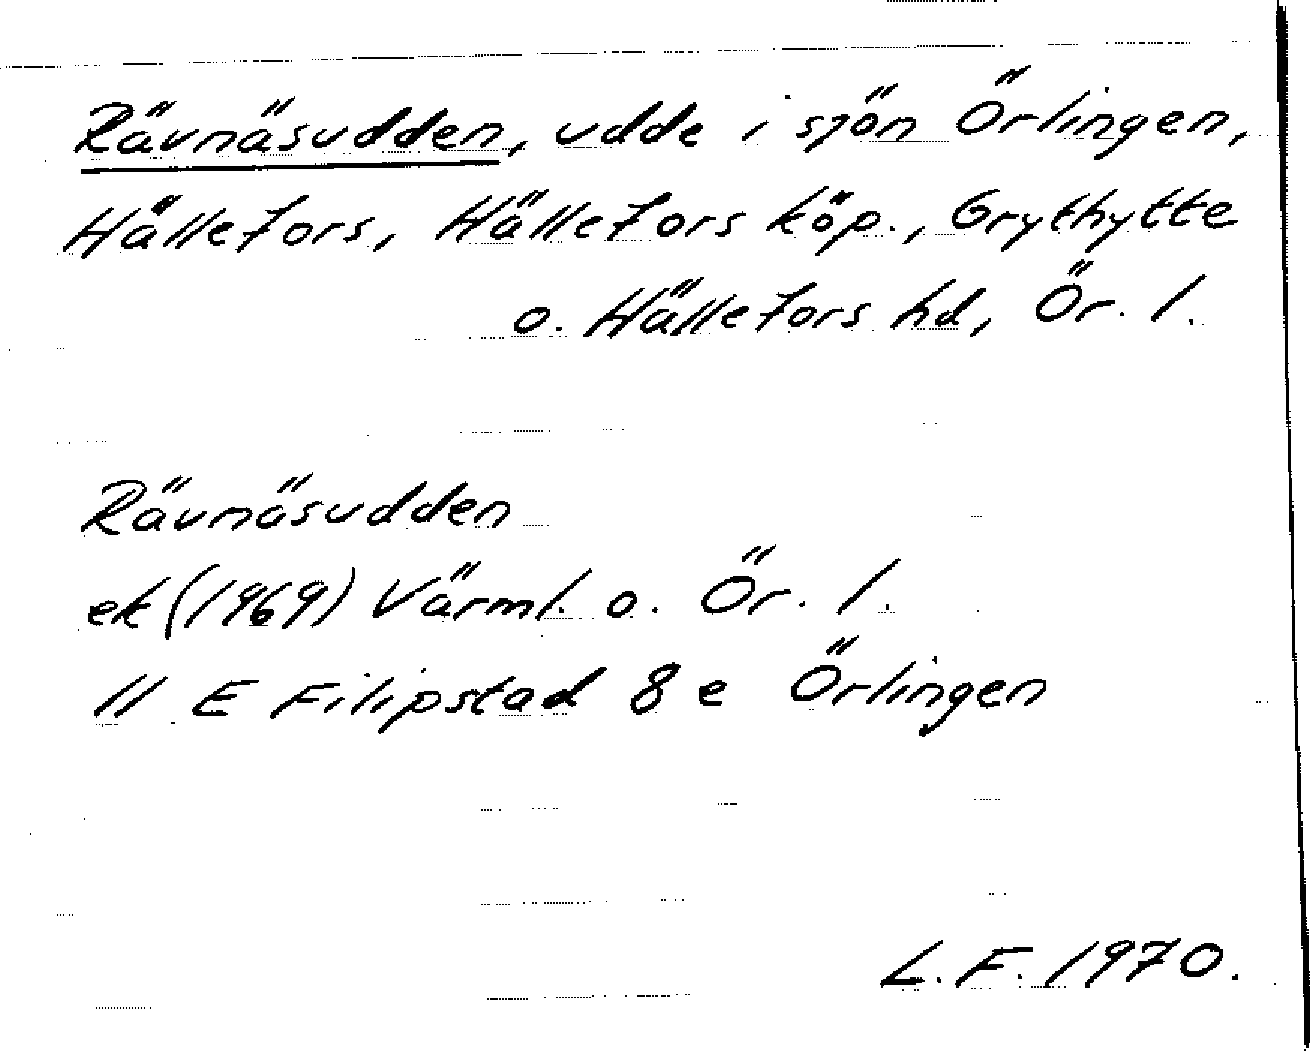 Rävnäsudden, udde i sjön Örlingen,
Hällefors, Hällefors köp., Grythytte
o. Hällefors hd, Ör. l.
Rävnäsudden
ek (1969) Värml. o. Ör. l.
11 E Filipstad 8 e Örlingen
L. F. 1970.